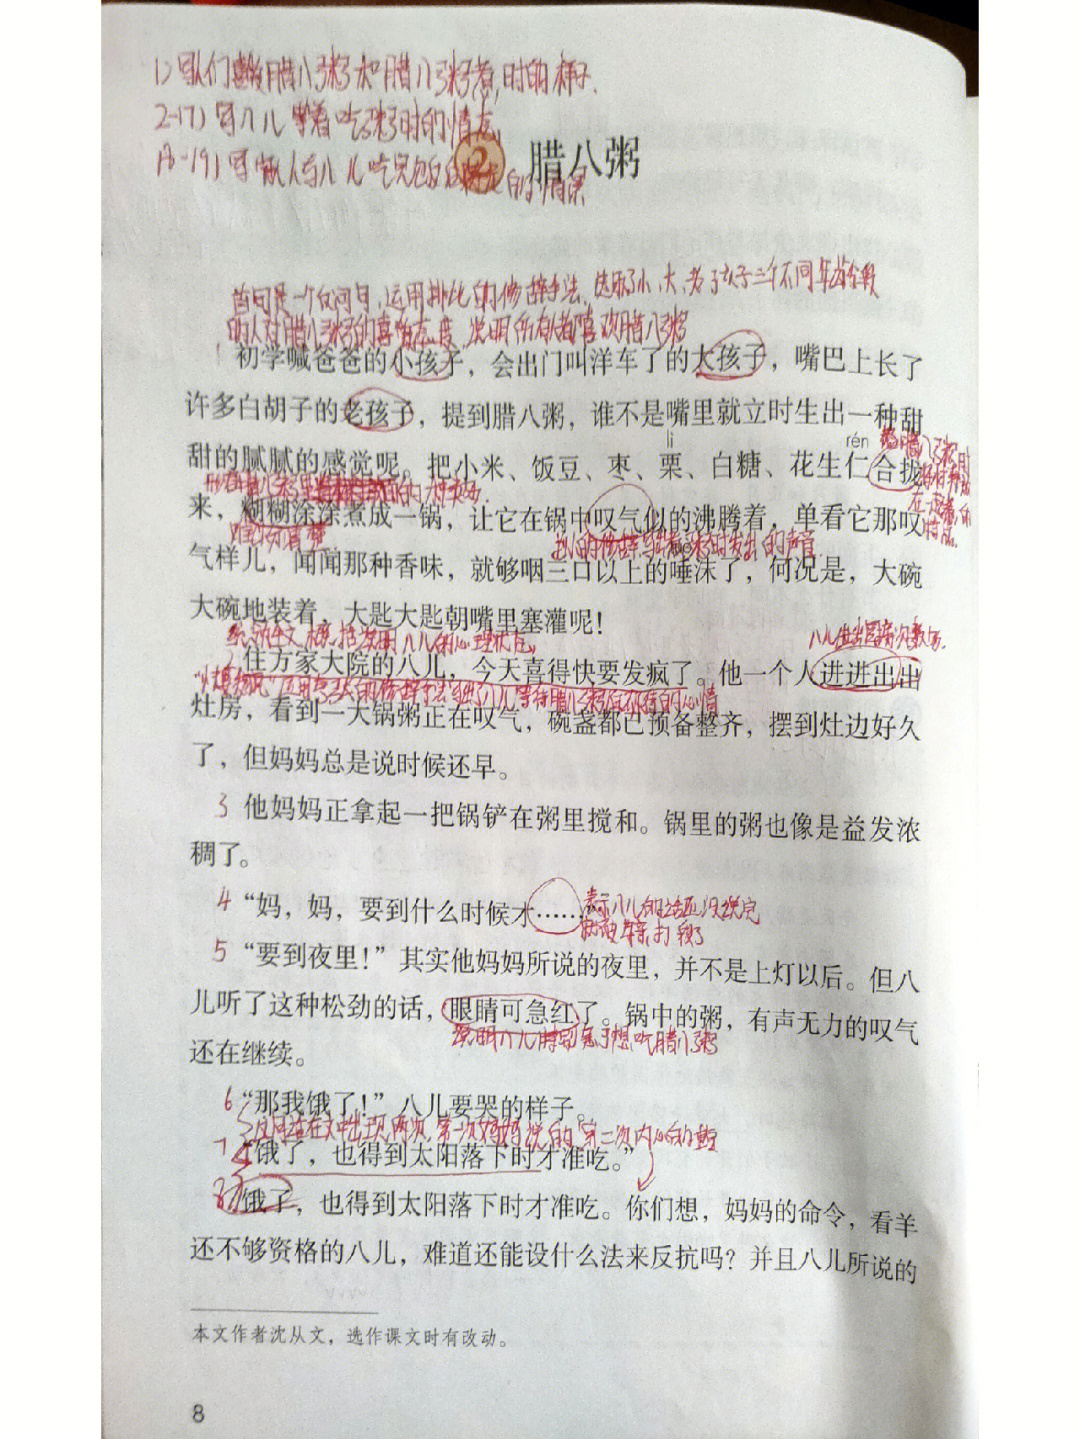 2-17) 写八儿等着吃粥时的情态
2 腊八粥
首句是一个反问句,运用排比的修辞手法,选取了小、大、老孩子三个不同年龄阶段
的人对腊八粥的喜爱态度,说明所有人都喜欢腊八粥
1 初学喊爸爸的小孩子,会出门叫洋车了的大孩子,嘴巴上长了
许多白胡子的老孩子,提到腊八粥,谁不是嘴里就立时生出一种甜
lì rén
甜的腻腻的感觉呢。把小米、饭豆、枣、栗、白糖、花生仁合拢
来,糊糊涂涂煮成一锅,让它在锅中叹气似的沸腾着,单看它那叹
拟人的修辞 写出煮粥时发出的声音
气样儿,闻闻那种香味,就够咽三口以上的唾沫了,何况是,大碗
大碗地装着,大匙大匙朝嘴里塞灌呢!
住方家大院的八儿,今天喜得快要发疯了。他一个人进进出出
灶房,看到一大锅粥正在叹气,碗盏都已预备整齐,摆到灶边好久
了,但妈妈总是说时候还早。
3 他妈妈正拿起一把锅铲在粥里搅和。锅里的粥也像是益发浓
稠了。
4 “妈,妈,要到什么时候才……”
表示八儿的话还没说完
就被妈妈打断了
5 “要到夜里!”其实他妈妈所说的夜里,并不是上灯以后。但八
儿听了这种松劲的话,眼睛可急红了。锅中的粥,有声无力的叹气
说明八儿特别急于想吃腊八粥
还在继续。
6 “那我饿了!”八儿要哭的样子。
7 “饿了,也得到太阳落下时才准吃。”
8 饿了,也得到太阳落下时才准吃。你们想,妈妈的命令,看羊
还不够资格的八儿,难道还能设什么法来反抗吗?并且八儿所说的
本文作者沈从文,选作课文时有改动。
8